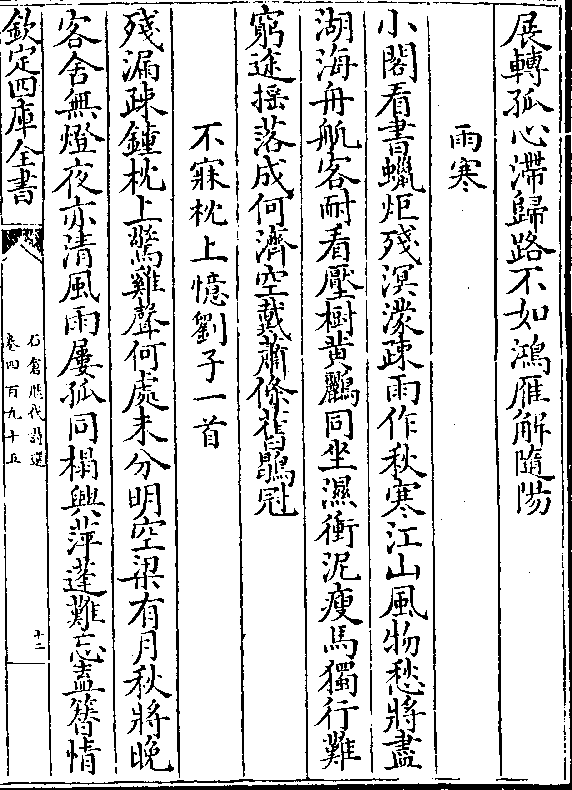 展轉孤心滯歸路不如鴻雁解隨陽
雨寒
小閣看書蠟炬殘溟濛疎雨作秋寒江山風物愁將盡
湖海舟航客耐看壓樹黄鸝同坐濕衝泥瘦馬獨行難
窮途揺落成何濟空戴蕭條舊鶡冠
不寐枕上憶劉子一首
殘漏疎鐘枕上驚雞聲何處未分明空梁有月秋將晚
客舍無燈夜亦清風雨屢孤同榻興萍蓬難忘盍簪情
欽定四庫全書
石倉歴代詩選
卷四百九十五
十二